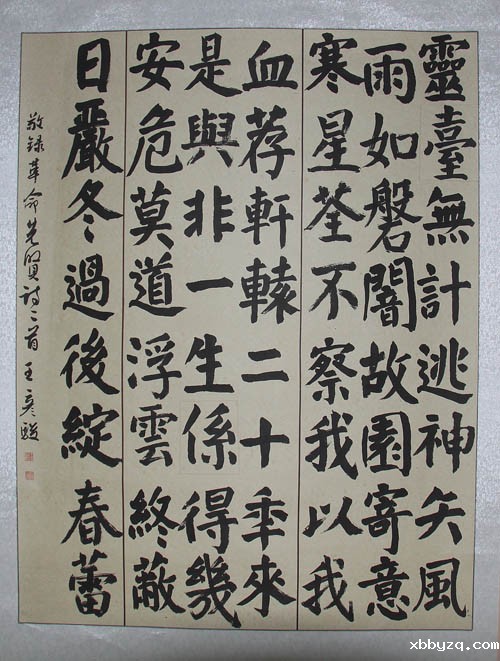 靈臺無計逃神矢風
雨如磐闇故園寄意
寒星荃不察我以我
血荐軒轅二十年來
是與非一生係得幾
安危莫道浮雲終蔽
日嚴冬過後綻春蕾
敬録革命先賢詩二首 王彦駿
xbbyzq.com